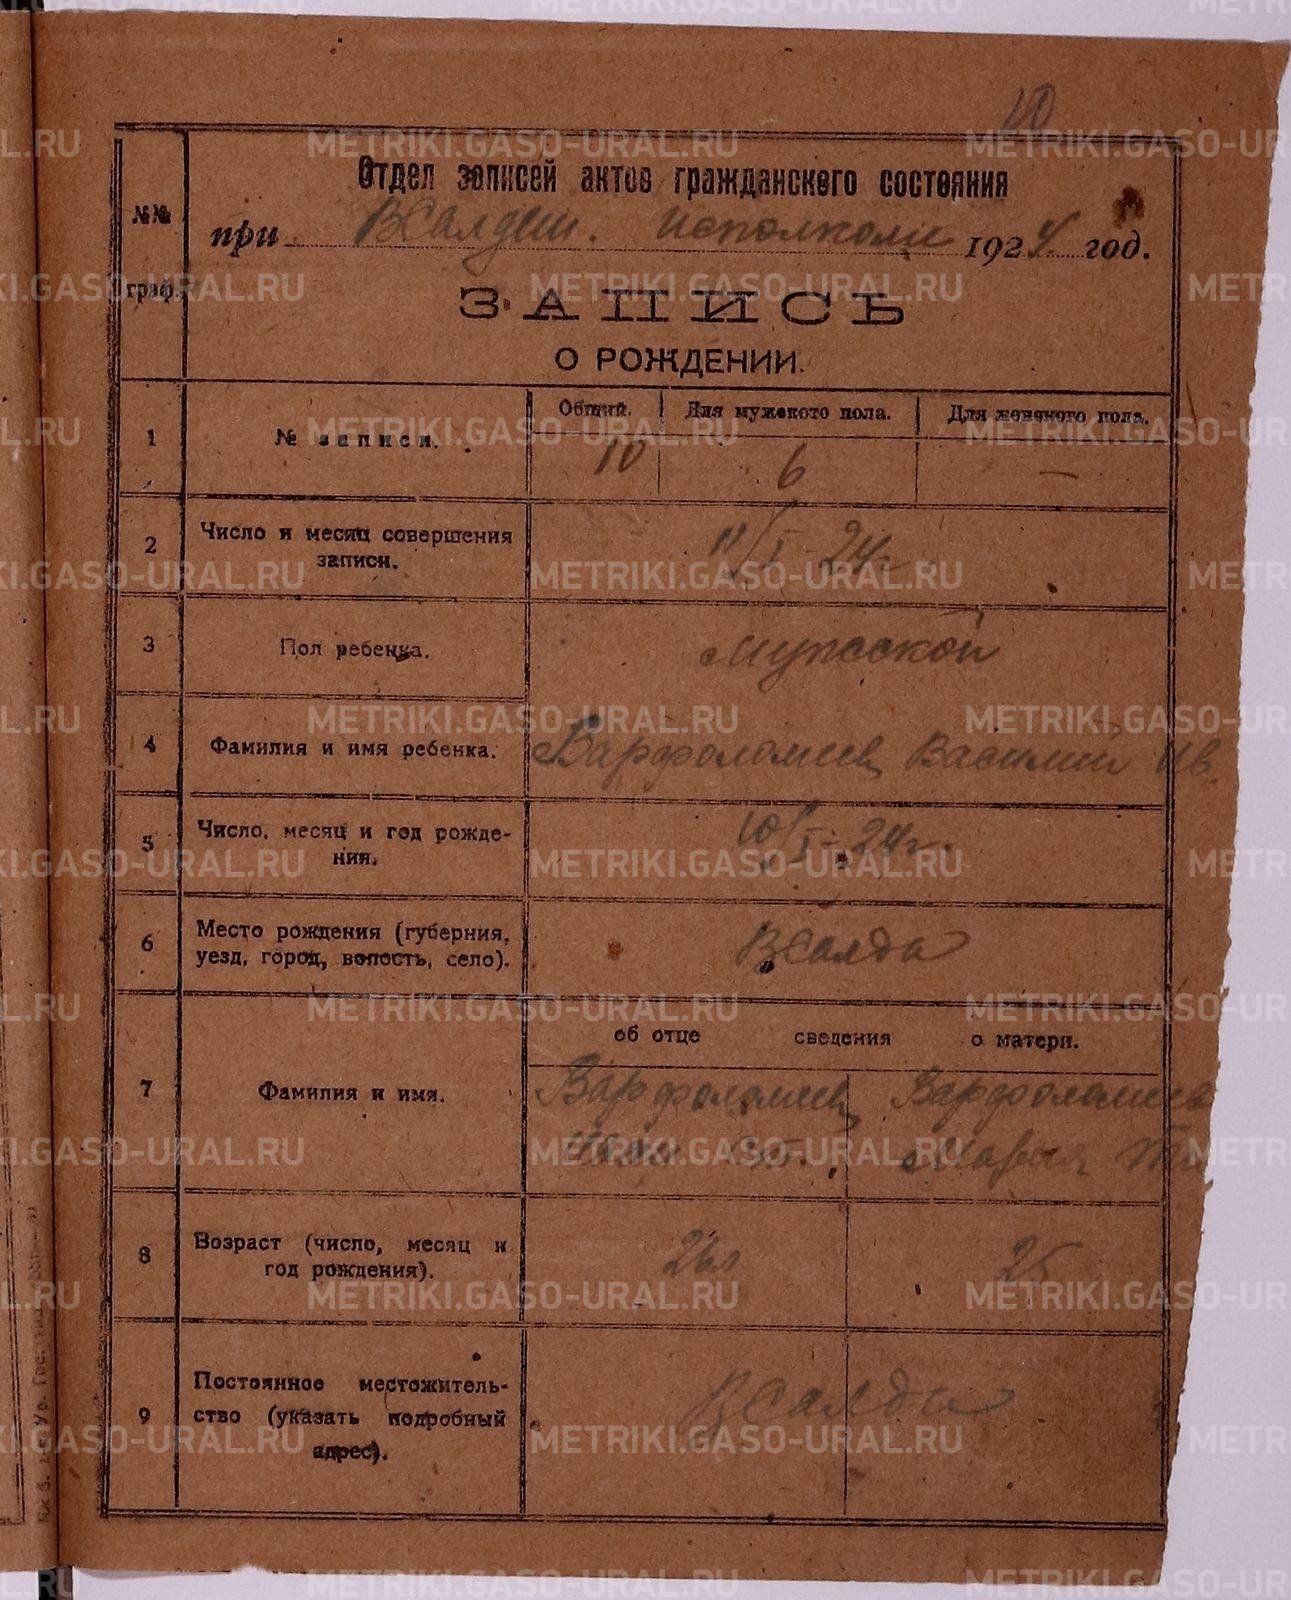 10
Отдел записей актов гражданского состояния
№№
граф.
при ВСалдин. исполкоме 1924 год.
ЗАПИСЬ
О РОЖДЕНИИ.
1
№ записи.
Общий.
Для мужского пола.
Для женского пола.
10
6
—
2
Число и месяц совершения
записи.
11/I-24г.
3
Пол ребенка.
Мужской
4
Фамилия и имя ребенка.
Варфоломиев Василий Ив.
5
Число, месяц и год рожде-
ния.
10/I-24г.
6
Место рождения (губерния,
уезд, город, волость, село).
ВСалда
об отце сведения о матери.
7
Фамилия и имя.
Варфоломиев
Иван
Варфоломиева
Мария
8
Возраст (число, месяц и
год рождения).
26л
25
9
Постоянное местожитель-
ство (указать подробный
адрес).
ВСалда
METRIKI.GASO-URAL.RU